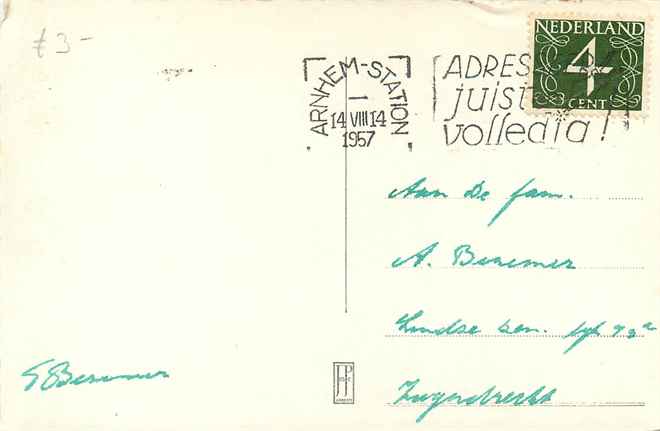 £3-
ARNHEM-STATION
14 VIII 14
1957
ADRES
juist
volledig!
NEDERLAND
4
CENT
Aan De fam.
A. Besemer
Lindtse
Zwijndrecht
Besemer